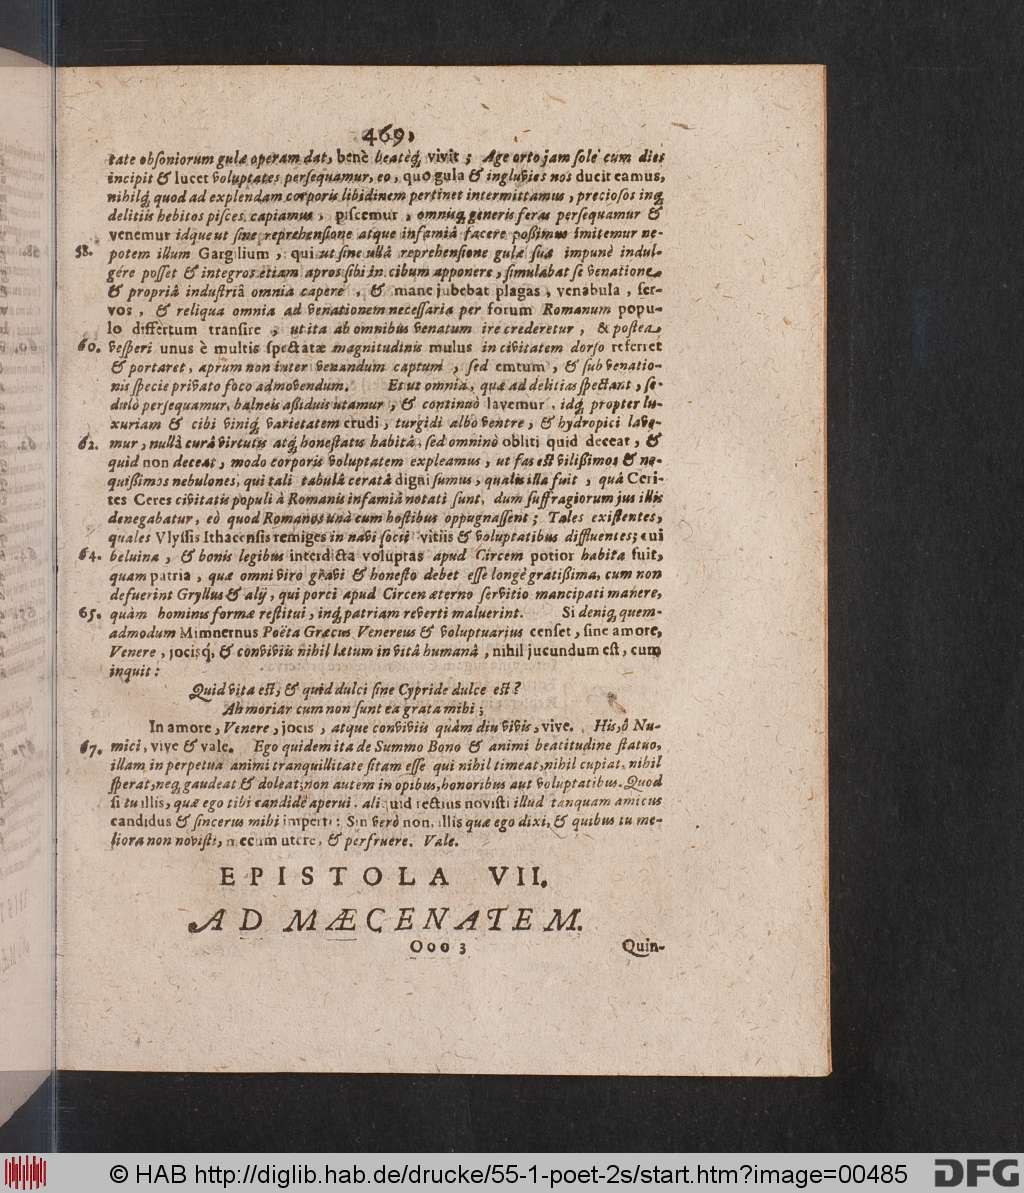 469.
tate obſoniorum gulæ operam dat, benè beatèq́; vivit ; Age orto jam ſole cum dies
incipit & lucet voluptates perſequamur, eo, quo gula & ingluvies nos ducit eamus,
nihilq́; quod ad explendam corporis libidinem pertinet intermittamus, precioſos inq́;
delitiis hebitos piſces capiamus, piſcemur, omniuq́; generis feras perſequamur &
venemur idque ut ſine reprehenſione atque infamiâ facere poßimus imitemur ne-
58. potem illum Gargilium, qui ut ſine ullâ reprehenſione gulæ ſuæ impunè indul-
gére poſſet & integros etiam apros ſibi in cibum apponere, ſimulabat ſe venatione
& propriâ induſtriâ omnia capere, & mane jubebat plagas, venabula, ſer-
vos, & reliqua omnia ad venationem neceſſaria per forum Romanum popu-
lo differtum tranſire, ut ita ab omnibus venatum ire crederetur, & poſtea
60. veſperi unus è multis ſpectatæ magnitudinis mulus in civitatem dorſo referret
& portaret, aprum non inter venandum captum, ſed emtum, & ſub venatio-
nis ſpecie privato foco admovendum. Et ut omnia, quæ ad delitias ſpectant, ſe-
dulò perſequamur, balneis aßiduis utamur, & continuò lavemur, idq́; propter lu-
xuriam & cibi viniq́; varietatem crudi, turgidi albo ventre, & hydropici lave-
62. mur, nullâ curâ virtutis atq́; honeſtatis habitâ, ſed omninò obliti quid deceat, &
quid non deceat, modo corporis voluptatem expleamus, ut fas eſt vilißimos & ne-
quißimos nebulones, qui tali tabulâ ceratâ digni ſumus, qualis illa fuit, quâ Ceri-
tes Ceres civitatis populi à Romanis infamiâ notati ſunt, dum ſuffragiorum jus illis
denegabatur, eò quod Romanos unà cum hoſtibus oppugnaſſent; Tales exiſtentes,
quales Vlyſſis Ithacenſis remiges in navi ſocii vitiis & voluptatibus diffluentes; cui
64. beluina, & bonis legibus interdicta voluptas apud Circem potior habita fuit,
quam patria, quæ omni viro gravi & honeſto debet eſſe longè gratißima, cum non
defuerint Gryllus & alij, qui porci apud Circen æterno ſervitio mancipati manere,
65. quàm hominus formæ reſtitui, inq́; patriam reverti maluerint. Si deniq́; quem-
admodum Mimnernus Poëta Græcus Venereus & voluptuarius cenſet, ſine amore,
Venere, jocisq́;, & conviviis nihil lætum in vitâ humanâ, nihil jucundum eſt, cum
inquit:
Quid vita eſt, & quid dulci ſine Cypride dulce eſt?
Ah moriar cum non ſunt ea grata mihi;
In amore, Venere, jocis, atque conviviis quàm diu vivis, vive. His, ô Nu-
67. mici, vive & vale. Ego quidem ita de Summo Bono & animi beatitudine ſtatuo,
illam in perpetua animi tranquillitate ſitam eſſe qui nihil timeat, nihil cupiat, nihil
ſperat, neq́; gaudeat & doleat; non autem in opibus, honoribus aut voluptatibus. Quod
ſi tu illis, quæ ego tibi candidè aperui, aliquid rectius noviſti illud tanquam amicus
candidus & ſincerus mihi imperti: Sin verò non, illis quæ ego dixi, & quibus tu me-
liora non noviſti, mecum utere, & perfruere. Vale.
EPISTOLA VII.
AD MÆCENATEM.
Ooo 3 Quin-
© HAB http://diglib.hab.de/drucke/55-1-poet-2s/start.htm?image=00485 DFG